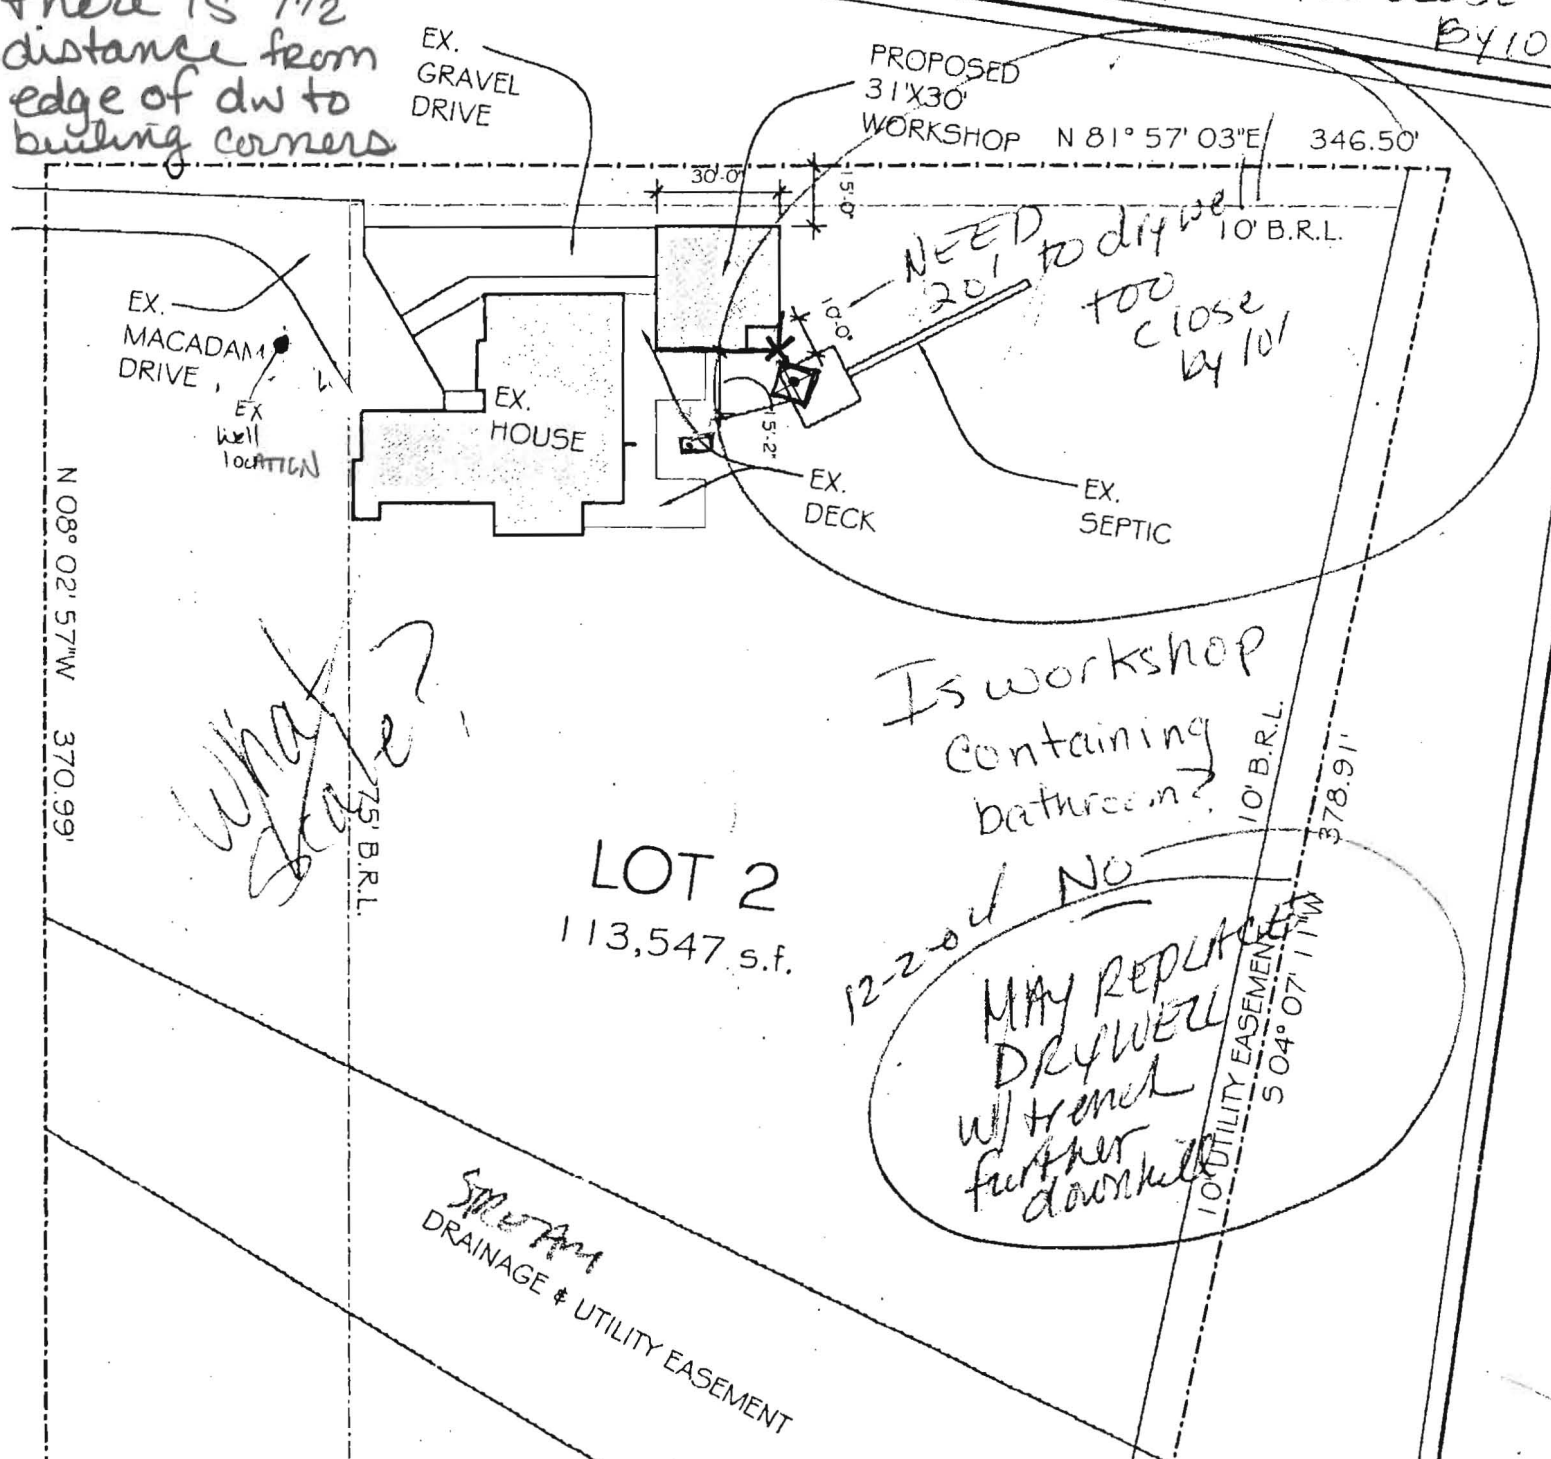 there is 7 1/2
distance from
edge of dw to
builing corners
CLOSE
BY 10
EX.
GRAVEL
DRIVE
PROPOSED
31'X30'
WORKSHOP
N 81° 57' 03"E
346.50'
30'-0"
15'-0"
10' B.R.L.
NEED
20'
to drywell
too
close
by 10'
10'-0"
EX.
MACADAM
DRIVE
EX
well
LOCATION
EX.
HOUSE
15'-2"
EX.
DECK
EX.
SEPTIC
N 08° 02' 57"W 370.99'
What
scale?
75' B.R.L.
Is workshop
containing
bathroom?
12-2-04
NO
10' B.R.L.
378.91'
LOT 2
113,547 s.f.
MAY REPLACE
DRYWELL
w/ trench
further
downhill
10' UTILITY EASEMENT
S 04° 07' 11"W
DRAINAGE & UTILITY EASEMENT